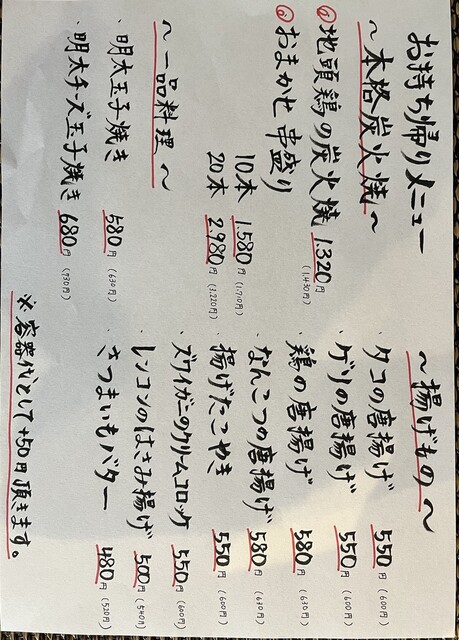 お持ち帰りメニュー
～本格炭火焼～
地頭鶏の炭火焼 1.320円 (1.430円)
おまかせ 串盛り
10本 1.580円 (1.710円)
20本 2.980円 (3.220円)
～一品料理～
・明太玉子焼き 580円 (630円)
・明太チーズ玉子焼き 680円 (730円)
～揚げもの～
・タコの唐揚げ 550円 (600円)
・ゲソの唐揚げ 550円 (600円)
・鶏の唐揚げ 580円 (630円)
・なんこつの唐揚げ 580円 (630円)
・揚げたこやき 550円 (600円)
・ズワイガニのクリームコロッケ 550円 (600円)
・レンコンのはさみ揚げ 500円 (540円)
・さつまいもバター 480円 (520円)
※容器代として+50円頂きます。